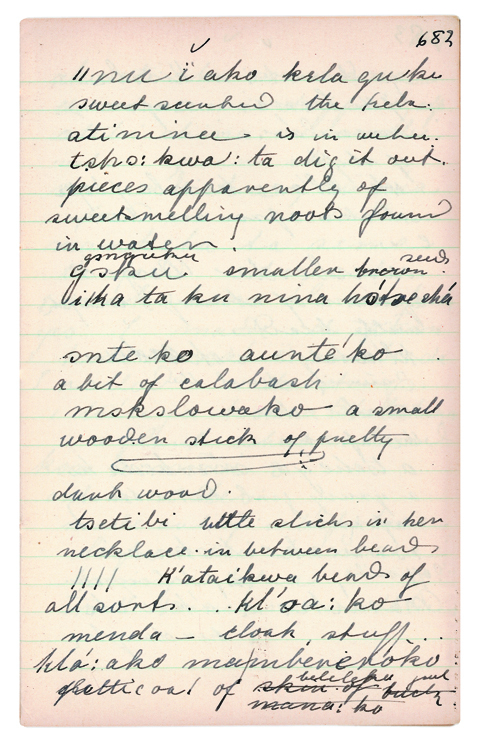 682
"nu ï ako kela guku
sweet scented the kela.
atininee is in water.
tshs: kwa: ta dig it out.
pieces apparently of
sweetsmelling roots found
in water.
gsku smaller brown seeds
iha ta ku nina
snte ko aunté ko
a bit of calabash
mskslowako a small
wooden stick of pretty
dark wood.
tsetibi little sticks in her
necklace in between beads
//// K'ataikwa beads of
all sorts... kl'sa: ko
menda – cloak, stuff...
klá: ako mamberenoko
petticoat of skin of buck
mana: ko